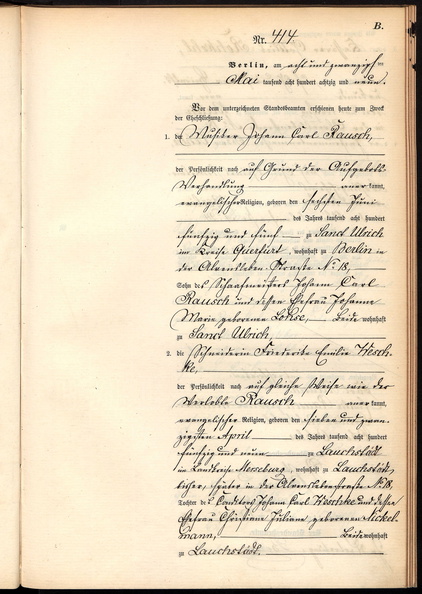 B.
Nr. 414
Berlin, am acht und zwanzigsten
Mai tausend acht hundert achtzig und neun.
Vor dem unterzeichneten Standesbeamten erschienen heute zum Zweck
der Eheschließung:
1. der Musiker Johann Carl Rausch,
der Persönlichkeit nach auf Grund der Aufgebots-
Verhandlung anerkannt,
evangelischer Religion, geboren den sechsten Juni
des Jahres tausend acht hundert
fünfzig und fünf zu Sanct Ulrich
im Kreise Querfurt, wohnhaft zu Berlin in
der Alvensleben Straße No 18,
Sohn des Johann Carl
Rausch und dessen Ehefrau Johanne
Marie geborenen Lohse, Beide wohnhaft
zu Sanct Ulrich,
2. die Schneiderin Friederike Emilie Hesch-
ke,
der Persönlichkeit nach auf gleiche Weise wie der
Verlobte Rausch anerkannt,
evangelischer Religion, geboren den sieben und zwan-
zigsten April des Jahres tausend acht hundert
fünfzig und neun zu Lauchstädt
im Landkreise Merseburg, wohnhaft zu Lauchstädt,
früher, später in der Alvenslebenstraße No 18,
Tochter des Conditors Johann Carl Heschke und dessen
Ehefrau Christiane Juliane geborenen Nickel-
mann, Beide wohnhaft
zu Lauchstädt.